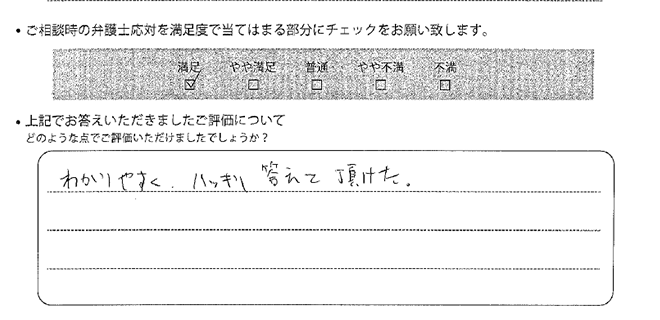 ・ご相談時の弁護士応対を満足度で当てはまる部分にチェックをお願い致します。
満足 やや満足 普通 やや不満 不満
☑ □ □ □ □
・上記でお答えいただきましたご評価について
どのような点でご評価いただけましたでしょうか？
わかりやすく、ハッキリ答えて頂けた。